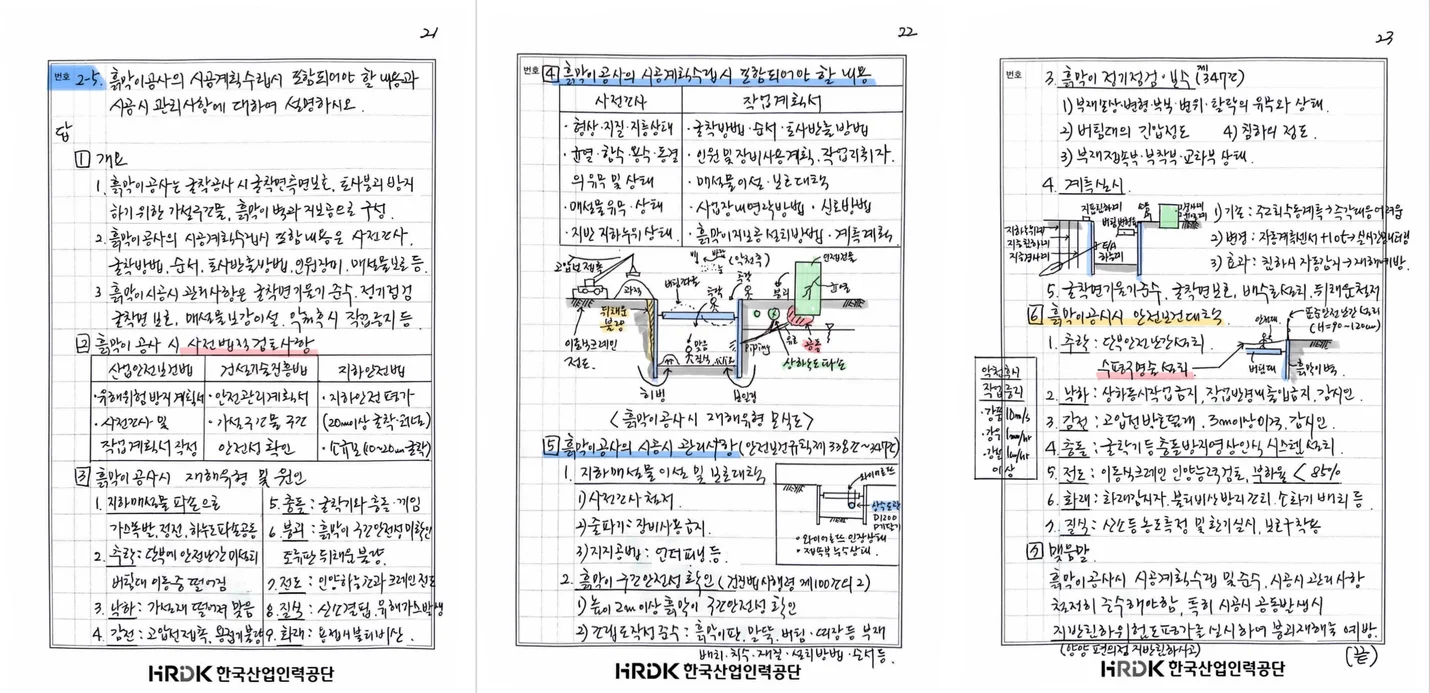 21
번호 2-5. 흙막이공사의 시공계획수립시 포함되어야 할 내용과
시공시 관리사항에 대하여 설명하시오.
답
1 개요
1. 흙막이공사는 굴착공사 시 굴착면측면보호, 토사붕괴 방지
하기 위한 가설구조물, 흙막이 벽과 지보공으로 구성.
2. 흙막이공사의 시공계획수립시 포함내용은 사전조사,
굴착방법·순서, 토사반출방법, 인원장비, 매설물보호 등.
3 흙막이시공시 관리사항은 굴착면기울기 준수, 정기점검
굴착면 보호, 매설물보강이설, 악천후시 작업금지 등
2 흙막이 공사 시 사전법적검토사항
산업안전보건법 건설기술진흥법 지하안전법
·유해위험방지계획서 ·안전관리계획서 ·지하안전 평가
·사전조사 및 ·가설구조물 구조 (20m이상 굴착·터널)
작업계획서 작성 안전성 확인 ·소규모(10~20m굴착)
3 흙막이 공사시 재해유형 및 원인
1. 지하매설물 파손으로
가스폭발, 정전, 하수도파손공동
2. 추락: 단부에 안전난간 미설치
버팀대 이동중 떨어짐
3. 낙하: 가설재 떨어져 맞음
4. 감전: 고압선접촉, 용접기불량
5. 충돌: 굴착기와 충돌·끼임
6. 붕괴: 흙막이 구조안전성 미확인
토류판 뒤채움 불량.
7. 전도: 인양하중초과 크레인 전도
8. 질식: 산소결핍, 유해가스발생
9. 화재: 용접시 불티비산.
HRDK 한국산업인력공단
22
번호 4 흙막이공사의 시공계획수립시 포함되어야 할 내용
사전조사 작업계획서
·형상·지질·지층상태 ·굴착방법·순서·토사반출방법
·균열·함수·용수·동결 ·인원 및 장비사용계획, 작업지휘자.
의 유무 및 상태 ·매설물이설·보호대책
·매설물유무·상태 ·사업장내연락방법·신호방법
·지반 지하수위 상태 ·흙막이지보공설치방법·계측계획
고압선접촉
과적
버팀보
(악천후)
추락
추락
인접건물
균열
붕괴
뒤채움
불량
이동식크레인
전도
맞음
질식
piping
유효
공동
상하수도파손
히빙
보일링
<흙막이공사시 재해유형 모식도>
5 흙막이공사의 시공시 관리사항(안전보건규칙제338조~347조)
1. 지하매설물 이설 및 보호대책
1) 사전조사 철저.
2) 줄파기: 장비사용금지.
3) 지지공법: 언더피닝 등.
와이어로프
상수도관
D1200
·와이어로프 인장상태
·접속부 누수상태.
2. 흙막이 구조안전성 확인 (건진법시행령 제100조의 2)
1) 높이 2m이상 흙막이 구조안전성 확인
2) 조립도작성 준수: 흙막이판, 말뚝, 버팀·띠장 등 부재
배치·치수·재질·설치방법·순서 등.
HRDK 한국산업인력공단
23
번호 3. 흙막이 정기점검·보수 (제347조)
1) 부재손상·변형·부식·변위·탈락의 유무와 상태.
2) 버팀대의 긴압정도 4) 침하의 정도.
3) 부재접속부·부착부·교차부 상태.
4. 계측실시.
지표침하계
지하수위계
지중침하계
지중경사계
버팀변형계
E/A
하중계
1) 기존: 주2회수동계측→즉각대응어려움
2) 변경: 자동계측센서+IoT→실시간모니터링
3) 효과: 침하시 자동감지→재해예방.
5. 굴착면기울기준수, 굴착면보호, 배수로설치, 뒤채움철저
6 흙막이공사시 안전보건대책
1. 추락: 단부안전난간설치.
수평구명줄 설치
안전대
표준안전난간 설치
(H=90~120cm)
버팀대
흙막이벽.
악천후시
작업중지
·강풍 10m/s
·강우 1mm/hr
·강설 1cm/hr
이상
2. 낙하: 상하동시작업 금지, 작업반경내출입금지, 감시인.
3. 감전: 고압선방호덮개, 3m이상이격, 감시인.
4. 충돌: 굴착기등충돌방지영상인식 시스템 설치.
5. 전도: 이동식크레인 인양능력검토, 부하율 < 85%
6. 화재: 화재감시자, 불티비산방지조치, 소화기 배치 등.
7. 질식: 산소등농도측정 및 환기실시, 보호구 착용
맺음말
흙막이공사시 시공계획수립 및 준수, 시공시 관리사항
철저히 준수해야함, 특히 시공시 공동발생시
지반침하위험도평가를 실시하여 붕괴재해를 예방.
(양양 편의점 지반침하사고) (끝)
HRDK 한국산업인력공단